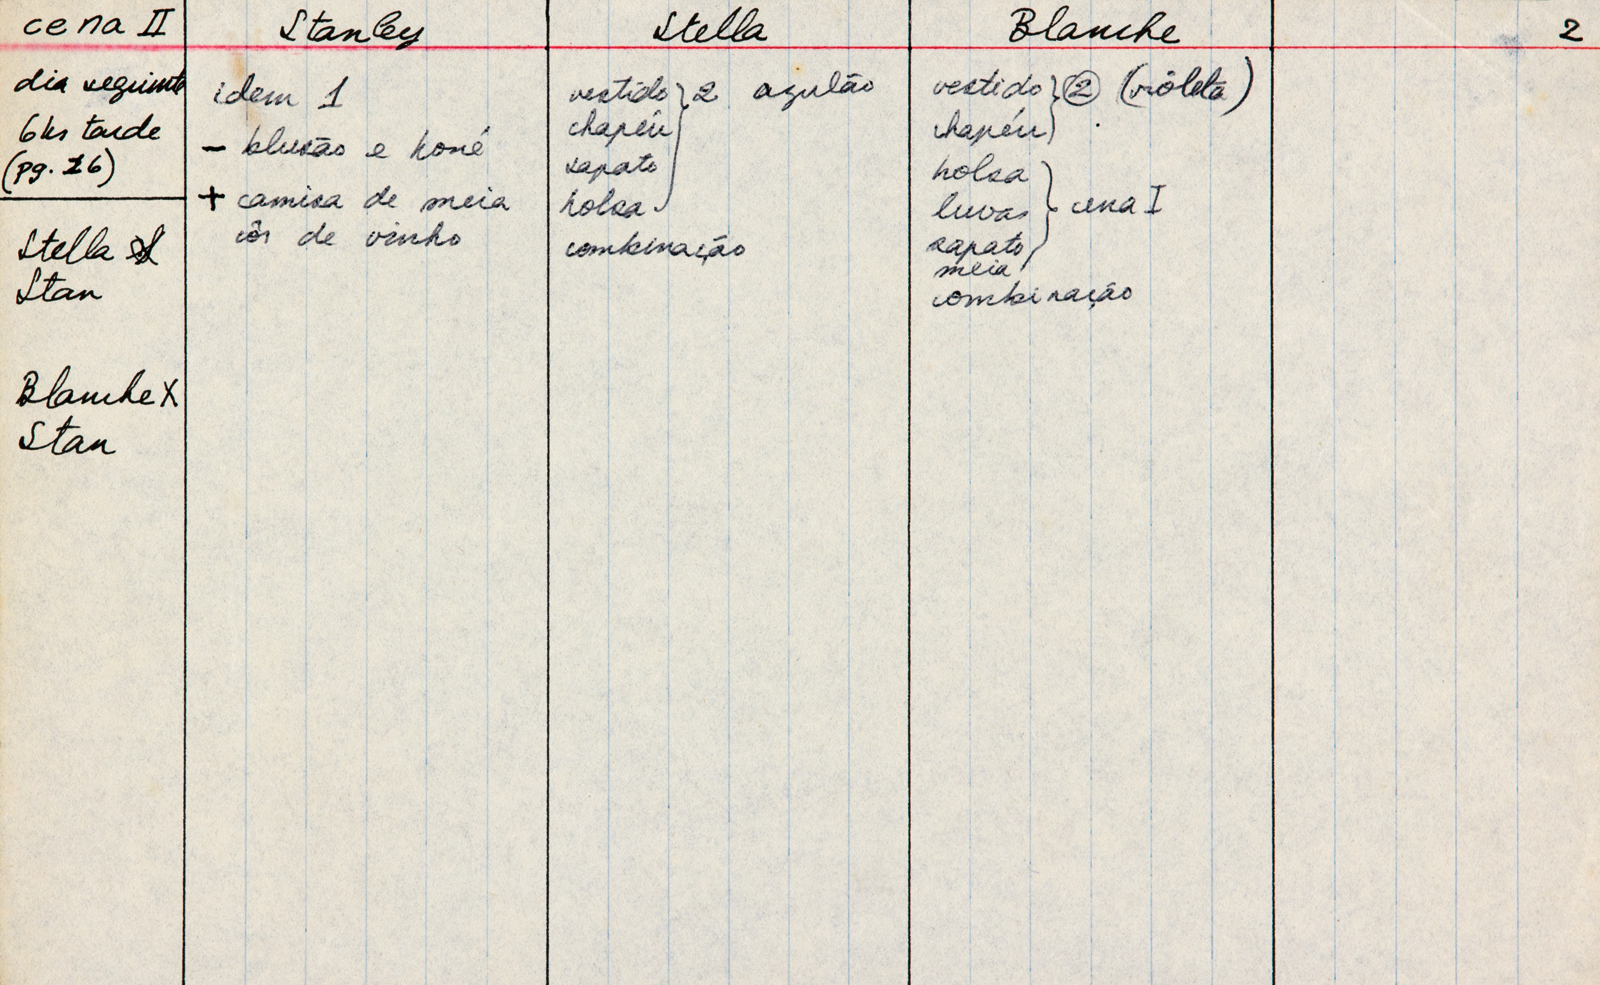 cena II
Stanley
Stella
Blanche
2
dia seguinte
6hs tarde
(pg. 26)
Stella X
Stan
Blanche X
Stan
idem 1
- blusão e boné
+ camisa de meia
côr de vinho
vestido } 2 azulão
chapéu
sapato
bolsa
combinação
vestido } 2 (violeta)
chapéu
bolsa
luvas } cena I
sapato
meia
combinação